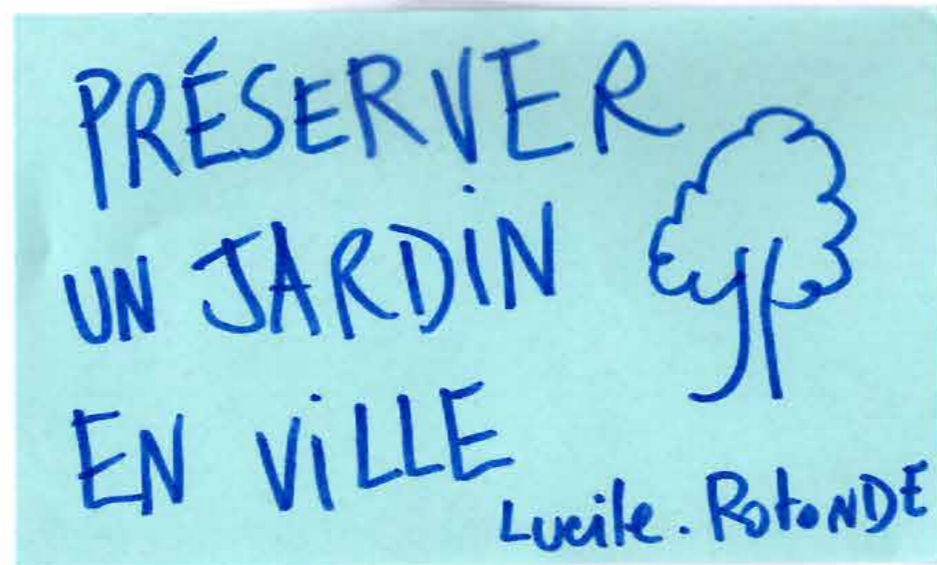 PRÉSERVER
UN JARDIN
EN ViLLE
Lucile. RotoNDE